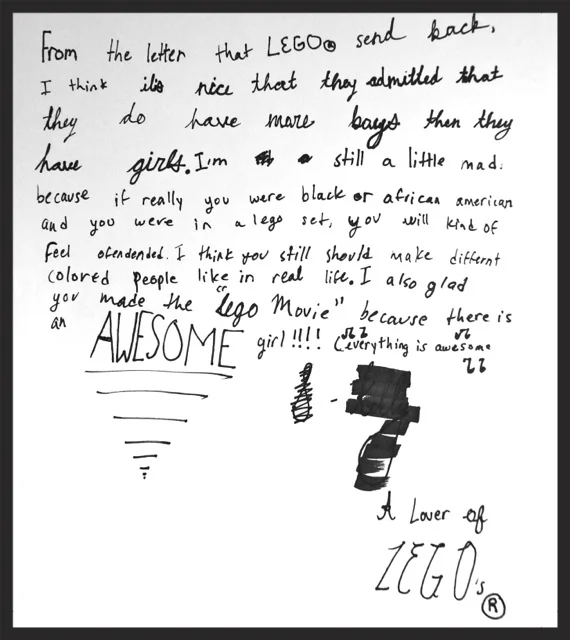 From the letter that LEGO® send back,
I think it's nice that they admitted that
they do have more boys then they
have girls. I'm still a little mad.
because if really you were black or african american
and you were in a lego set, you will kind of
feel ofendended. I think you still should make differnt
colored people like in real life. I also glad
you made the "lego Movie" because there is
an AWESOME girl!!!! (everything is awesome
A Lover of
LEGO's
®